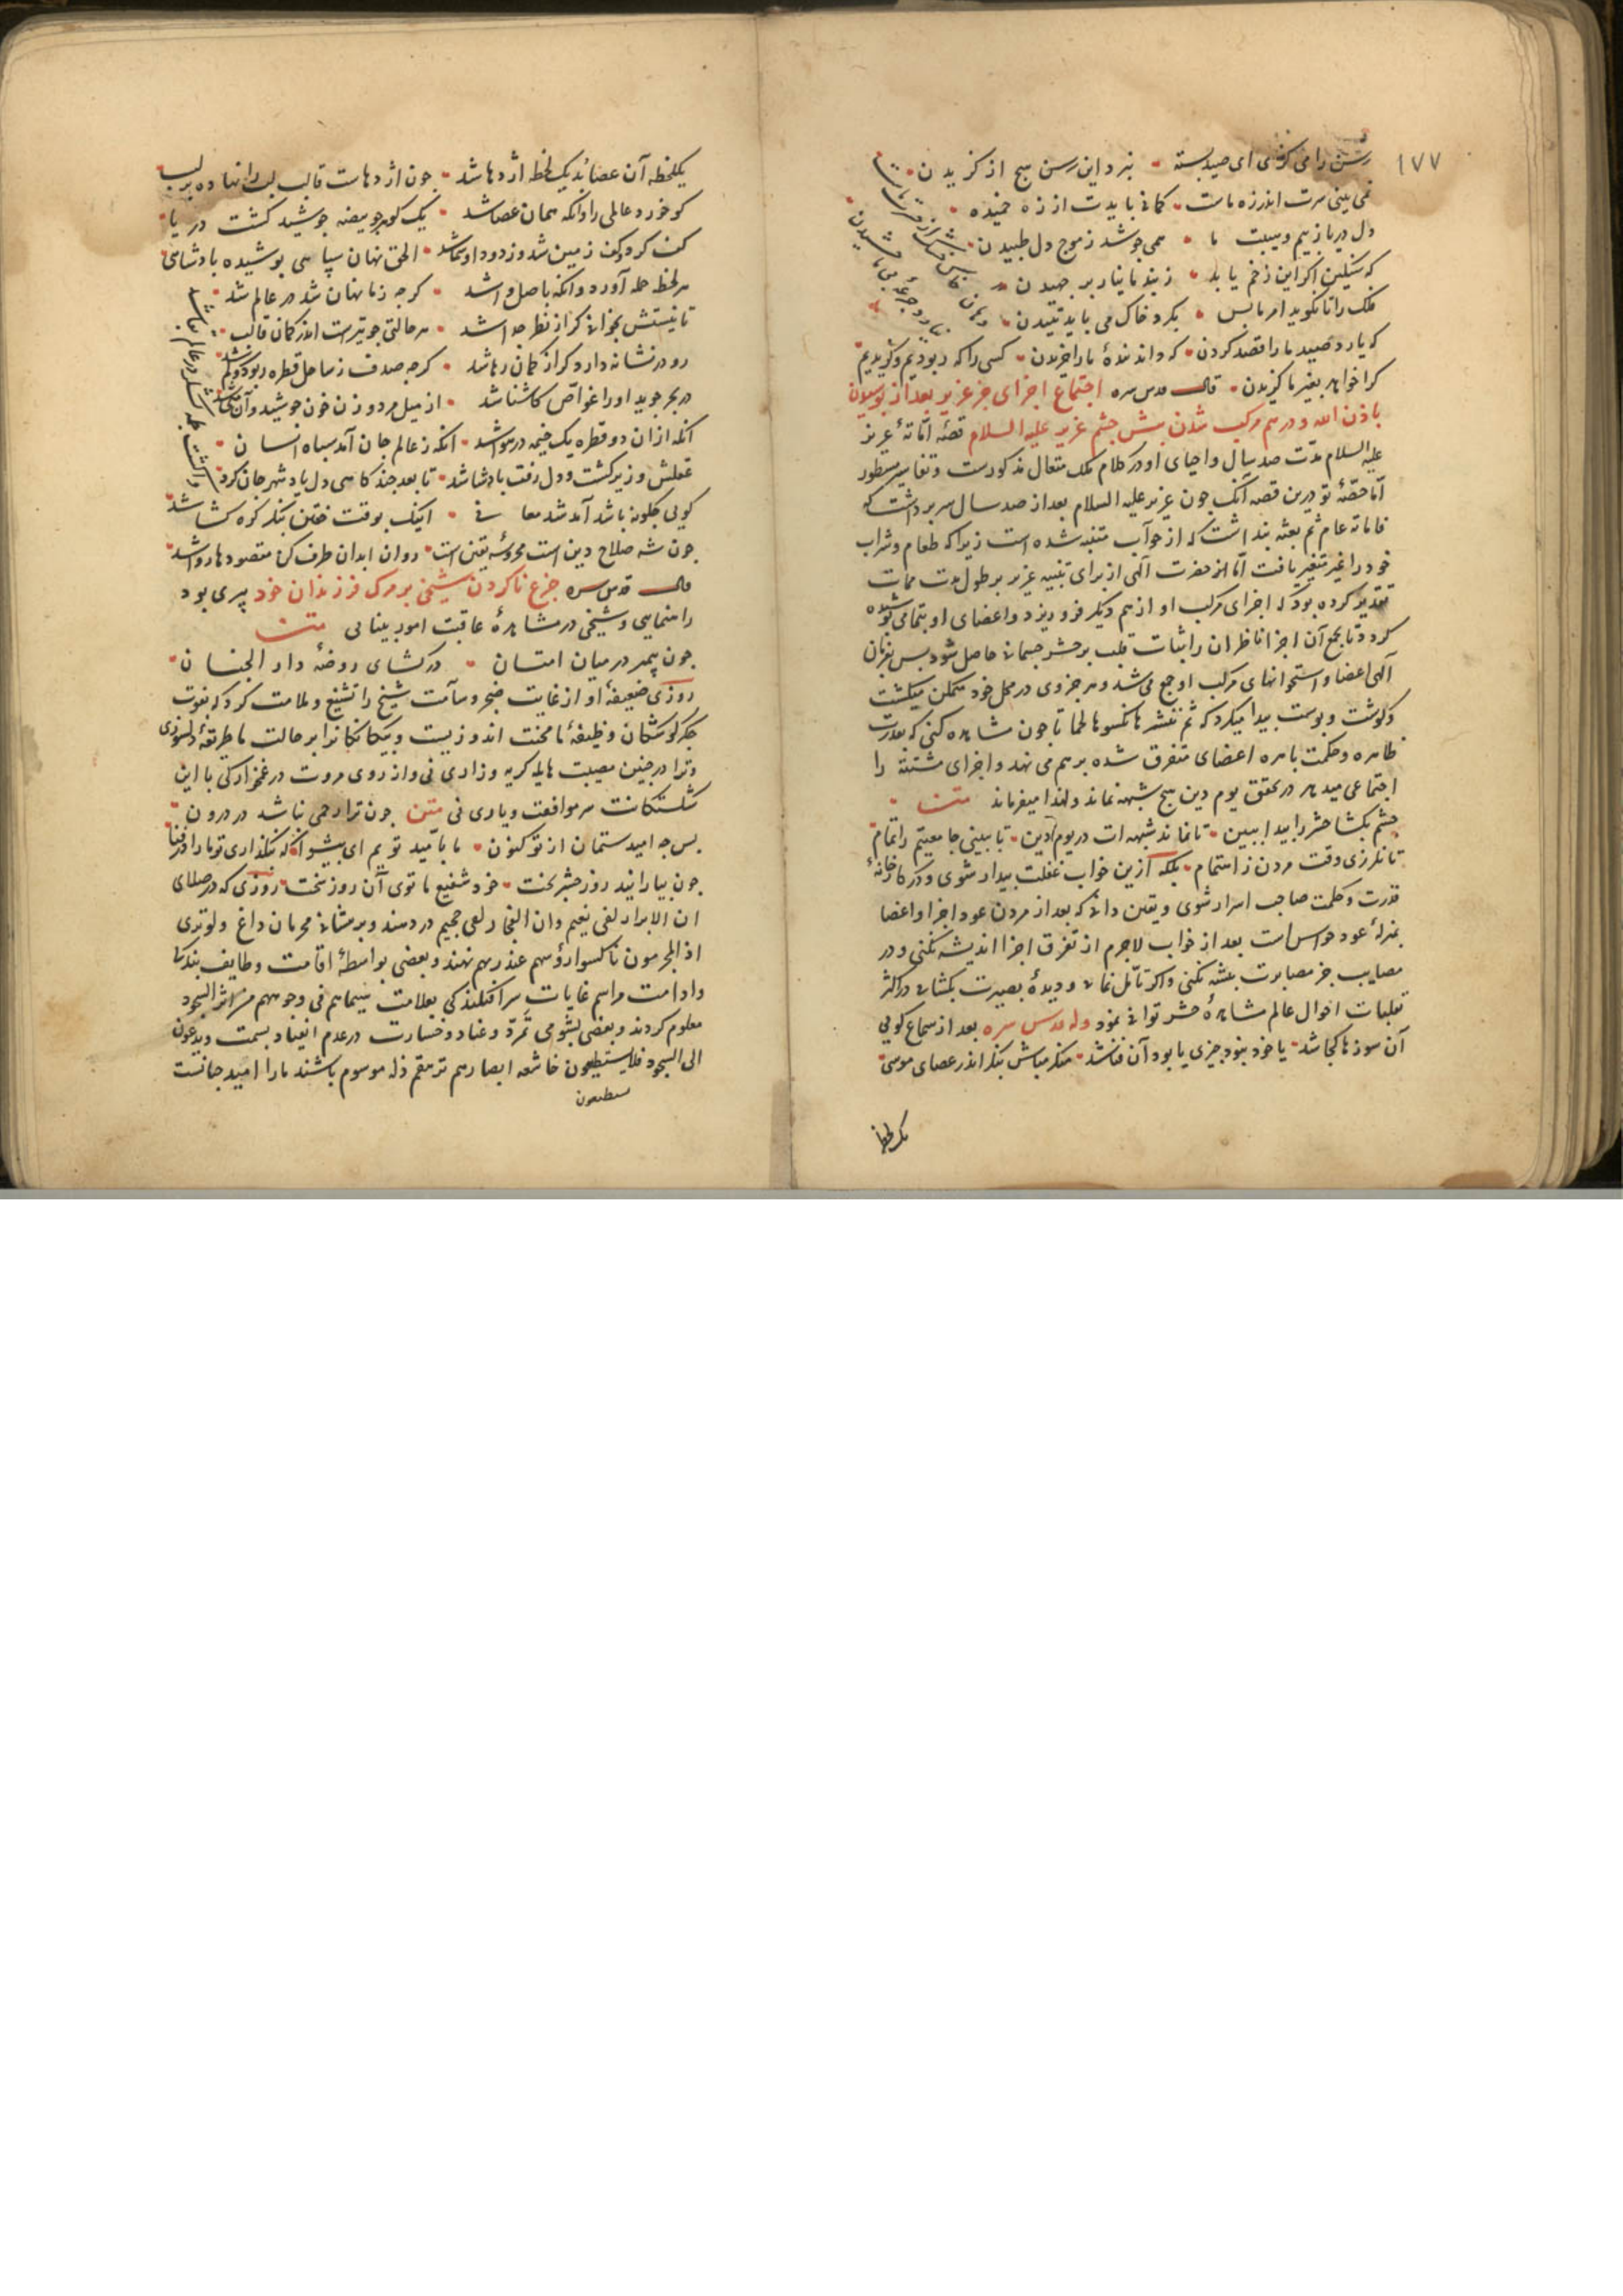 ١٧٧
رسن را می گزی ای صید بسته نبرد این رسن هیچ از گزیدن
نمی بینی سرت اندر زه ماست کمانی بایدت از زه خمیده
دل دریا ز بیم و هیبت ما همی جوشد ز موج دل طپیدن
که سنگین اگر این زخم یابد ز بند ما نیارد بر جهیدن
فلک را تا نگوید امر ما بس بگرد خاک می باید تنیدن
که یارد صید ما را قصد کردن که داند بندهٔ ما را خریدن کسی را که ربودیم و گزیدیم
کرا خواهد بغیر ما گزیدن قال قدس سره اجتماع اجزای خر عزیر بعد از پوسیدن
باذن الله و درهم مرکب شدن پیش چشم عزیر علیه السلام قصهٔ اماتهٔ عزیر
علیه السلام مدت صد سال و احیای او در کلام ملک متعال مذکورست و تفاسیر مسطور
اما حصّهٔ تو درین قصه آنک چون عزیر علیه السلام بعد از صد سال سر برداشت که
فاماته عام ثم بعثه پنداشت که از خواب متنبه شده است زیرا که طعام و شراب
خود را غیر متغیر یافت اما از حضرت الهی از برای تنبیه عزیر بر طول مدت ممات
تقدیر کرده بود که اجزای مرکب او از هم دیگر فرو ریزد و اعضای او بتمامی پوشیده
گردد تا بجمع آن اجزا ناظران را اثبات قلب بر حشر جسمانی حاصل شود پس بفرمان
الهی اعضا و استخوانهای مرکب او جمع می شد و هر جزوی در محل خود متمکن میگشت
و گوشت و پوست پیدا میکرد که ثم ننشزها نکسوها لحما تا چون مشاهده کنی که بقدرت
ظاهره و حکمت باهره اعضای متفرق شده برهم می نهد و اجزای مشتته را
اجتماعی میدهد در تحقق یوم دین هیچ شبهه نماند و لهذا میفرماند متن
چشم بکشا حشر را پیدا ببین تا نماند شبهه ات در یوم دین تا ببینی جامعیتم را تمام
تا نلرزی وقت مردن ز اهتمام بلکه ازین خواب غفلت بیدار شوی و در کارخانهٔ
قدرت و حکمت صاحب اسرار شوی و یقین دانی که بعد از مردن عود اجزا و اعضا
بمنزلهٔ عود حواس است بعد از خواب لاجرم از تفرق اجزا اندیشه نکنی و در
مصایب جز مصابرت پیشه نکنی و اگر تأمل نمایی و دیدهٔ بصیرت بکشایی در اکثر
تقلبات احوال عالم مشاهدهٔ حشر توانی نمود وله قدس سره بعد از سماع گویی
آن سوزها کجا شد یا خود نبود چیزی یا بود آن فنا شد منکر مباش بنگر اندر عصای موسی
یکلحظه
یکلحظه آن عصا بُد یک لحظه اژدها شد چون اژدهاست قالب لب را نهاده بر لب
کو خورد عالمی را وانکه همان عصا شد یک گوهر چو بیضه جوشید گشت دریا
کف کرد و کف زمین شد وز دود او سما شد الحق نهان سپاهی پوشیده پادشاهی
هر لحظه حمله آورد وانکه باصل واشد گرچه ز ما نهان شد در عالم شد
تا نیستش نخوانی گر از نظر جدا شد هر حالتی چو تیرست اندر کمان قالب
رو در نشانه دارد گر از کمان رها شد گرچه صدف ز ساحل قطره ربود و گم شد
در بحر جوید او را غواص کاشنا شد از میل مرد و زن خون جوشید وآن منی شد
آنگه از ان دو قطره یک خیمه در هوا شد آنگه ز عالم جان آمد سپاه انسان
عقلش وزیر گشت و دل رفت پادشا شد تا بعد چند گاهی دل یاد شهر جان کرد
گویی چگونه باشد آمد شد معانی اینک بوقت خفتن بنگر گره گشا شد
چون شه صلاح دین است محروسه یقین است روان ابدان طرف کن مقصودها روا شد
قال قدس سره جزع ناکردن شیخی بر مرگ فرزندان خود پیری بود
راهنمایی و شیخی در مشاهدهٔ عاقبت امور بینایی متن
چون پیمبر در میان امتان درگشای روضهٔ دار الجنان
روزی ضعیفهٔ او از غایت ضجر و سآمت شیخ را تشنیع و ملامت کرد که بفوت
جگر گوشگان وظیفهٔ ما محنت اندوزیست و بیگانگانرا بر حالت ما طریقهٔ دلسوزی
و ترا در چنین مصیبت هایله گریه و زاری نی و از روی مروت در غمخوارگی با این
شکستگانت سر موافقت و یاری نی متن چون ترا رحمی نباشد در درون
پس چه امیدستمان از تو کنون ما بامید توییم ای پیشوا که نگذاری تو ما را در فنا
چون بیارایند روز حشر تخت خود شفیع ما توی آن روز سخت روزی که در صلای
ان الابرار لفی نعیم وان الفجار لفی جحیم در دهند و بر پیشانی مجرمان داغ ولو تری
اذ المجرمون ناکسوا رؤسهم عند ربهم نهند و بعضی بواسطهٔ اقامت وظایف بندگی
و ادامت مراسم غایات سرافکندگی بعلامت سیماهم فی وجوههم من اثر السجود
معلوم گردند و بعضی بشومی تمرّد و عناد و خسارت در عدم انقیاد بسمت ویدعون
الی السجود فلا یستطیعون خاشعه ابصارهم ترهقهم ذله موسوم باشند ما را امید چنانست
ستطیعون